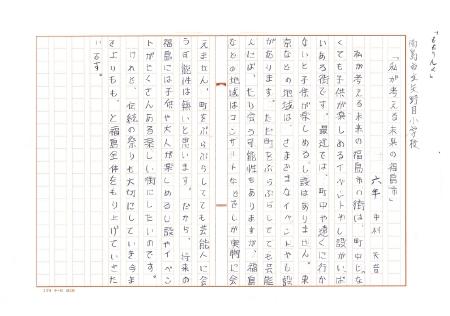 福島市立矢野目小学校
「私が考える未来の福島市」
六年 中村 天音
私が考える未来の福島市の街は、町中じゃな
くても子供が楽しめるイベントやし設がいっぱ
いある街です。最近では、町中や遠くに行か
ないと子供が楽しめるし設はありません。東
京などの地域は、さまざまなイベントやし設
があります。ただ町をぶらぶらしてても芸能
人にば、たり会うす能性もありますが、福島
などの地域はコンサートならしか実物に会
えません。町をぶらぶらしてても芸能人に会
うす能性は無いと思います。だから、将来の
福島には子供や大人が楽しめるし設やイベン
トがたくさんある楽しい街にしたいのです。
けれど、伝統の祭りも大切にしていき今ま
でよりもも、と福島全体をもり上げていきた
いです。